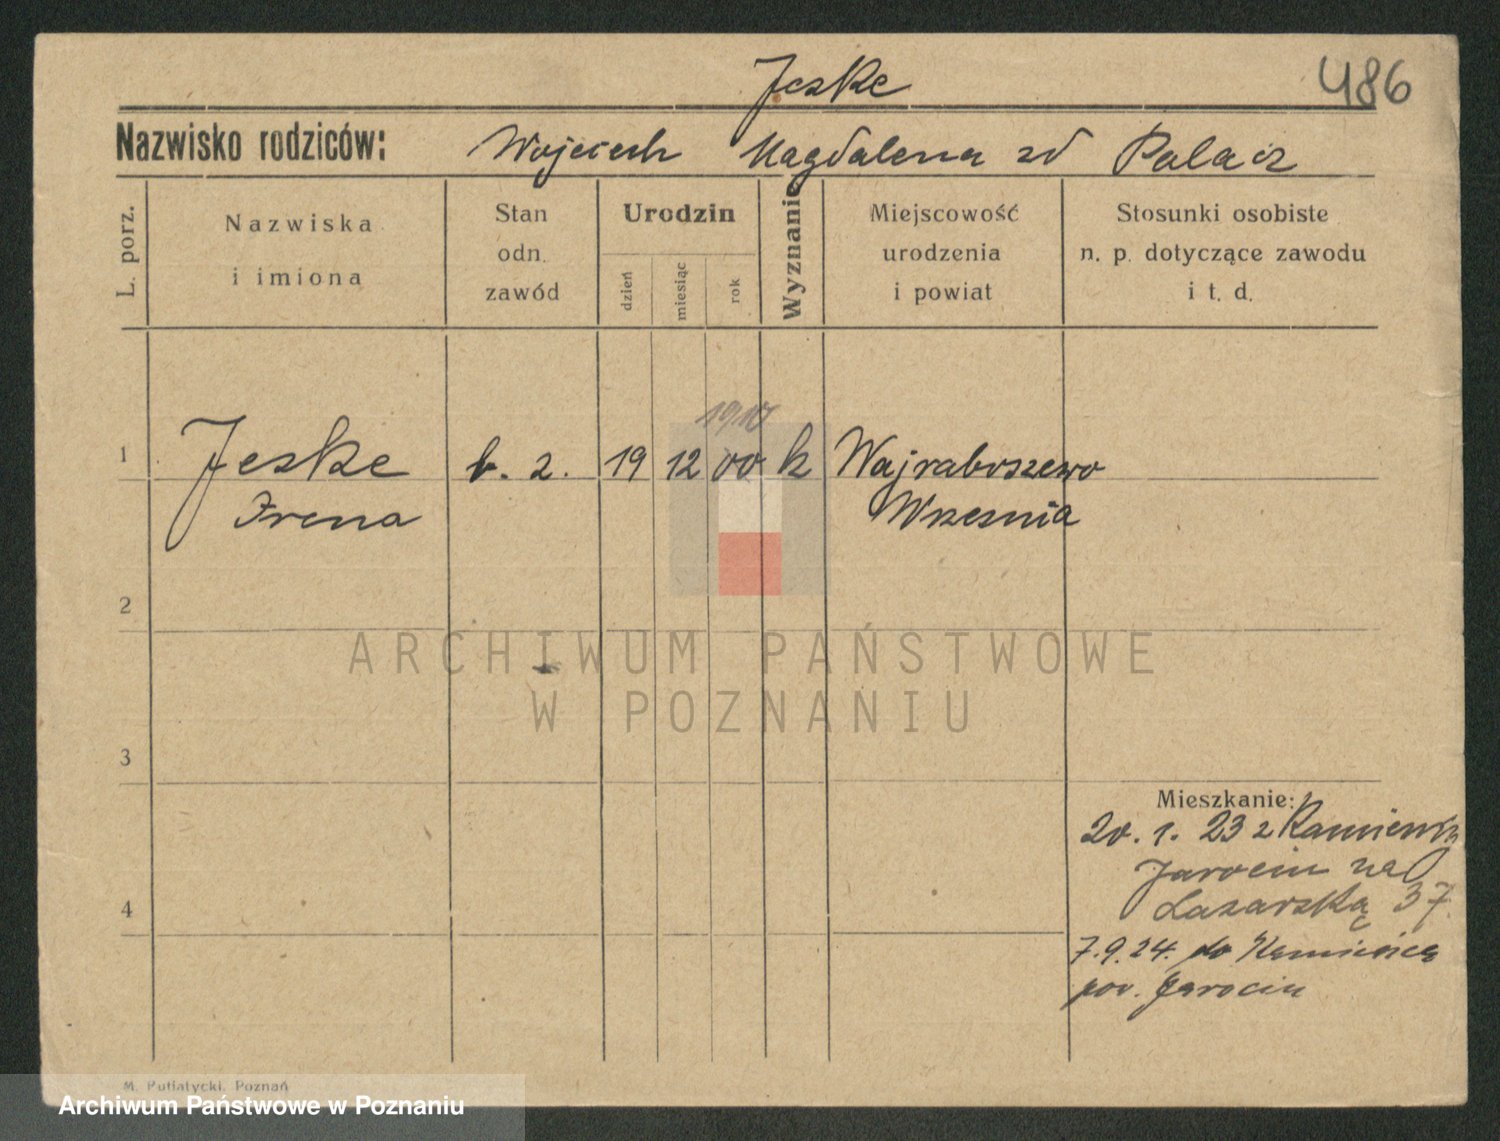 Jeske
486
Nazwisko rodziców: Wojciech Magdalena zd Palacz
L. porz.
Nazwiska
i imiona
Stan
odn.
zawód
Urodzin
dzień
miesiąc
rok
Wyznanie
Miejscowość
urodzenia
i powiat
Stosunki osobiste
n. p. dotyczące zawodu
i t. d.
1910
1 Jeske b. z. 19 12 00 k Wajraboszewo
Irena Wrzesnia
2
ARCHIWUM PAŃSTWOWE
W POZNANIU
3
Mieszkanie:
20. 1. 23 z
Jarocin na
Lazarską 37.
4
7.9.24. do
pow. Jarocin
M. Putiatycki, Poznań
Archiwum Państwowe w Poznaniu